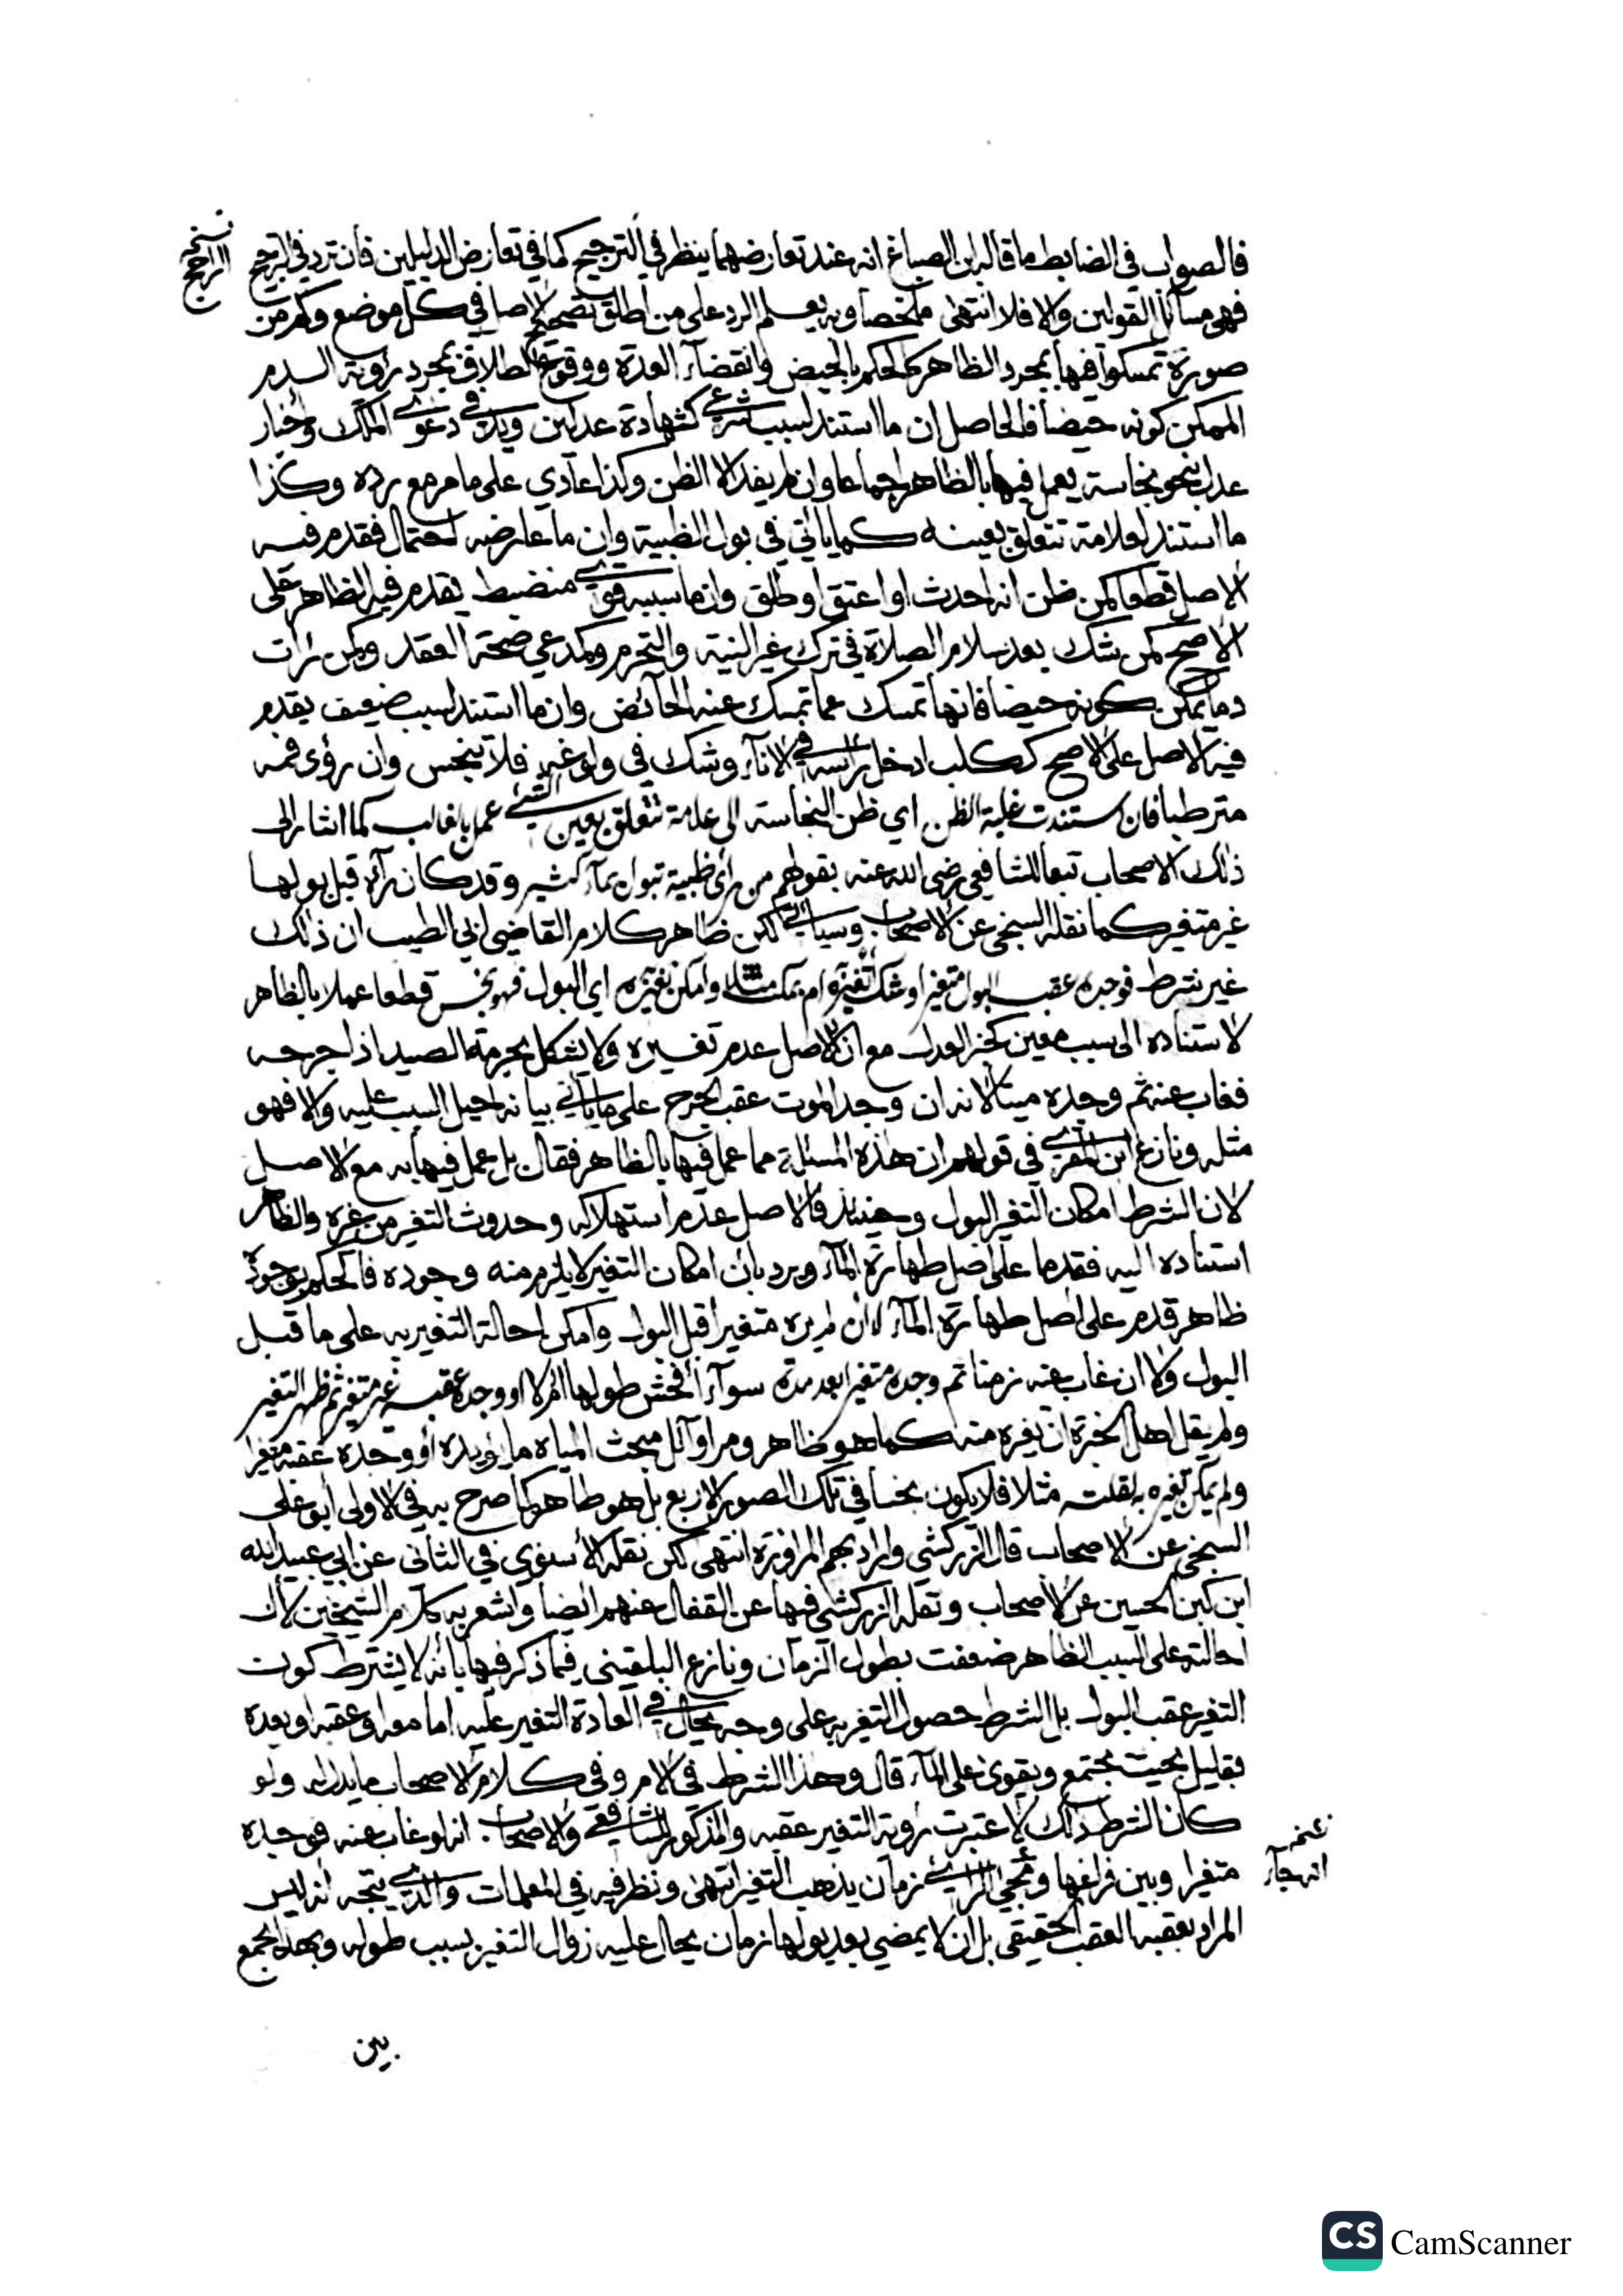 فالصواب في الضابط ما قاله ابن الصباغ انه عند تعارضهما ينظر في الترجيح كما في تعارض الدليلين فان تردد في الترجيح
نسخه
الراجح
فهي مسائل القولين والا فلا انتهى ملخصا وبه يعلم الرد على من اطلق تصحيح الاصل في كل موضع وكم من
صورة تمسكوا فيها بمجرد الظاهر كالحكم بالحيض وانقضاء العدة ووقوع الطلاق بمجرد رؤية الدم
الممكن كونه حيضا فالحاصل ان ما استند لسبب شرعي كشهادة عدلين ويد في دعوى الملك واخبار
عدل بنحو نجاسة يعمل فيها بالظاهر اجماعا وان لم يفد الا الظن وكذا عادي على ما مر مع رده وكذا
ما استند لعلامة تتعلق بعينه كما ياتي في بول الظبية وان ما عارضه احتمال فقدم فيه
الاصل قطعا كمن ظن انه احدث او اعتق او طلق وان ما سببه قوي منضبط يقدم فيه الظاهر على
الاصح كمن شك بعد سلام الصلاة في ترك غير النية والتحرم وكمدعي صحة العقد وكمن رات
دما يمكن كونه حيضا فانها تمسك عما تمسك عنه الحائض وان ما استند لسبب ضعيف يقدم
فيه الاصل على الاصح ككلب ادخل راسه في الاناء وشك في ولوغه فلا ينجس وان رؤى فمه
مترطبا فان استندت غلبة الظن اي ظن النجاسة الى علامة تتعلق بعين الشيء عمل بالغالب كما اشار الى
ذلك الاصحاب تبعا للشافعي رضي الله عنه بقولهم من راى ظبية تبول بماء كثير وقد كان رآه قبل بولها
غير متغير كما نقله السنجي عن الاصحاب وسياتي لكن ظاهر كلام القاضي ابي الطيب ان ذلك
غير شرط فوجده عقب البول متغيرا وشك اتغيره ام بمكث مثلا وامكن تغيره اي البول فهو نجس قطعا عملا بالظاهر
لاستناده الى سبب معين كخبر العدل مع ان الاصل عدم تغيره ولا يشكل بحرمة الصيد اذا جرحه
فغاب عنه ثم وجده ميتا لانه ان وجد الموت عقب الجرح على ما ياتي بيانه احيل السبب عليه والا فهو
مثله ونازع ابن المقري في قولهم ان هذه المسئلة مما عمل فيها بالظاهر فقال بل عمل فيها به مع الاصل
لان الشرط امكان التغير البول وحينئذ فالاصل عدم استهلاكه وحدوث التغير من غيره والظاهر
استناده اليه فقدما على اصل طهارة الماء ويرد بان امكان التغير لا يلزم منه وجوده فالحكم بوجوده
ظاهر قدم على اصل طهارة الماء لا ان لم يره متغيرا قبل البول وامكن احالة التغير به على ما قبل
البول ولا ان غاب عنه زمنا ثم وجده متغيرا بعد مدة سواء افحش طولها ام لا او وجده عقبه غير متغير ثم ظهر التغير
ولم يقل اهل الخبرة ان تغيره منه كما هو ظاهر ومر اوائل مبحث المياه ما يؤيده او وجده عقبه متغيرا
ولم يمكن تغيره به لقلته مثلا فلا يكون نجسا في تلك الصور الاربع بل هو طاهر كما صرح به في الاولى ابو علي
السنجي عن الاصحاب قال الزركشي والمراد بهم المراوزة انتهى لكن نقله الاسنوي في الثاني عن ابي عبيد الله
ابن كبن الحسين عن الاصحاب ونقله الزركشي فيها عن القفال عنهم ايضا واشعر به كلام الشيخين لان
احالته على السبب الظاهر ضعفت بطول الزمان ونازع البلقيني فيما ذكر فيها بانه لا يشترط كون
التغير عقب البول بل الشرط حصول التغير به على وجه يحال في العادة التغير عليه اما معه او عقبه او بعده
بقليل بحيث يجتمع ويقوى على الماء قال وهذا الشرط في الام وفى كلام الاصحاب ما يدل له ولو
كان الشرط ذلك لاعتبرت رؤية التغير عقبه والمذكور للشافعي والاصحاب انه لو غاب عنه فوجده
عنه
انه جاء
متغيرا وبين فراغها ومجئ الرائي زمان يذهب التغير انتهى ونظر فيه في المعلمات والذي يتجه انه ليس
المراد بعقبه العقب الحقيقي بل ان لا يمضي بعد بولها زمان يحال عليه زوال التغير بسبب طوله وبهذا يجمع
بين
CS CamScanner